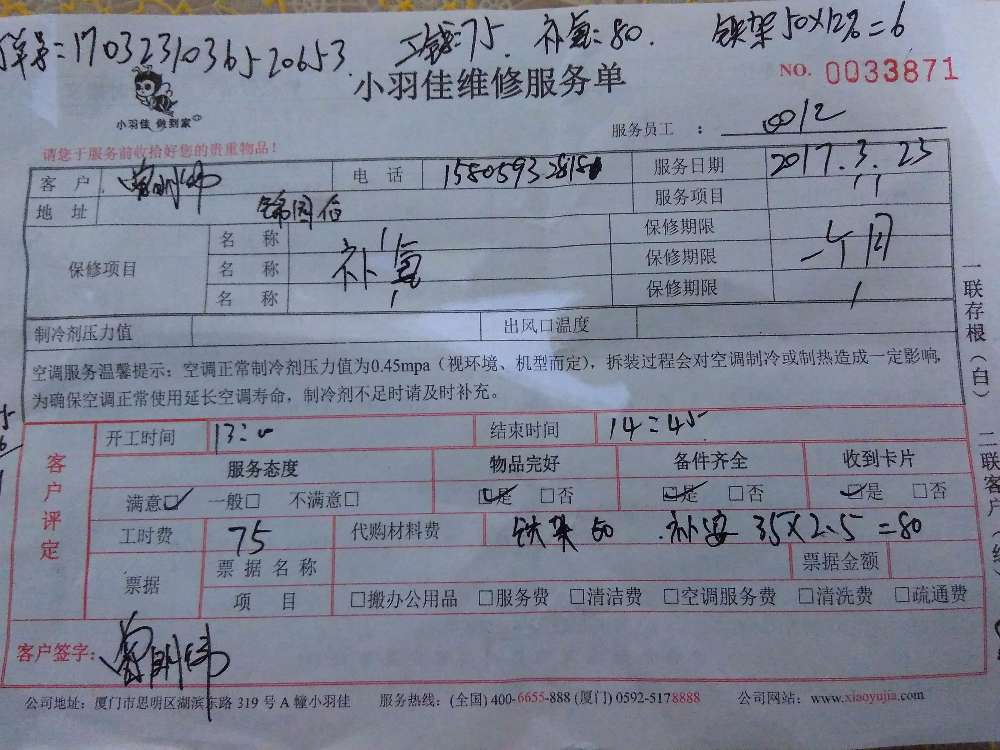 单号:1703231036520653 工钱:75. 补氟:80. 铁架50X12%=6
NO. 0033871
小羽佳维修服务单
小羽佳 做到家
服务员工 : 0012
请您于服务前收拾好您的贵重物品!
客 户 曾明伟 电 话 服务日期 2017.3.23
地 址 服务项目
保修项目 名 称 保修期限
名 称 补氟 保修期限 一个月
名 称 保修期限
制冷剂压力值 出风口温度
空调服务温馨提示:空调正常制冷剂压力值为0.45mpa(视环境、机型而定),拆装过程会对空调制冷或制热造成一定影响,
为确保空调正常使用延长空调寿命,制冷剂不足时请及时补充。
一联存根(白)
二联客户(红)
客户评定
开工时间 13:00 结束时间 14:45
服务态度 物品完好 备件齐全 收到卡片
满意☑ 一般□ 不满意□ ☑是 □否 ☑是 □否 ☑是 □否
工时费 75 代购材料费 铁架 50 35X2.5=80
票据 票据名称 票据金额
项 目 □搬办公用品 □服务费 □清洁费 □空调服务费 □清洗费 □疏通费
客户签字: 曾明伟
公司地址:厦门市思明区湖滨东路 319 号 A 幢小羽佳 服务热线:(全国) 400-6655-888 (厦门) 0592-5178888 公司网站:www.xiaoyujia.com